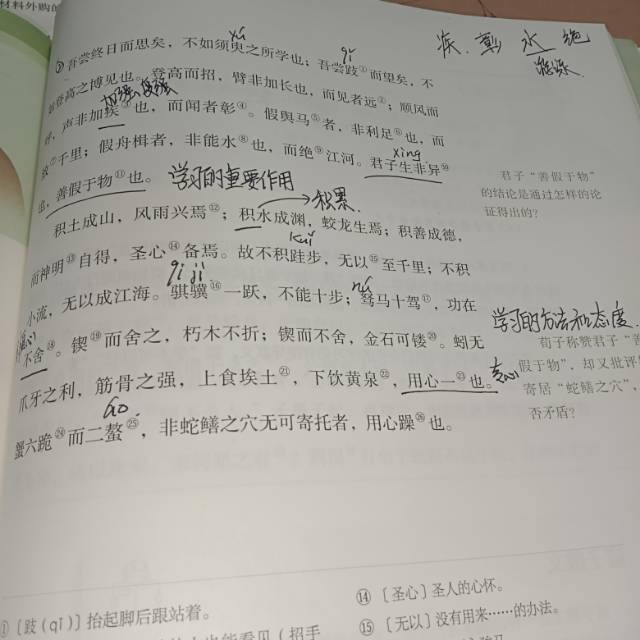 材料外购的
疾、彰 水 绝
游泳
xū
③吾尝终日而思矣，不如须臾之所学也；吾尝跂①而望矣，不
qǐ
登高之博见也。登高而招，臂非加长也，而见者远②；顺风而
呼，声非加疾③也，而闻者彰④。假舆马⑤者，非利足⑥也，而
致⑦千里；假舟楫者，非能水⑧也，而绝⑨江河。君子生非异⑩
xìng
也，善假于物⑪也。 学习的重要作用
积累
积土成山，风雨兴焉⑫；积水成渊，蛟龙生焉；积善成德，
而神明⑬自得，圣心⑭备焉。故不积跬步，无以⑮至千里；不积
kuǐ
小流，无以成江海。骐骥⑯一跃，不能十步；驽马十驾⑰，功在
qí jì
nú
不舍⑱。锲⑲而舍之，朽木不折；锲而不舍，金石可镂⑳。蚓无
爪牙之利，筋骨之强，上食埃土㉑，下饮黄泉㉒，用心一㉓也。
蟹六跪㉔而二螯㉕，非蛇鳝之穴无可寄托者，用心躁㉖也。
áo
君子“善假于物”
的结论是通过怎样的论
证得出的？
学习的方法和态度
荀子称赞君子“善
假于物”，却又批评
寄居“蛇鳝之穴”，
否矛盾？
①〔跂（qǐ）〕抬起脚后跟站着。
也能看见（招手
⑭〔圣心〕圣人的心怀。
⑮〔无以〕没有用来……的办法。